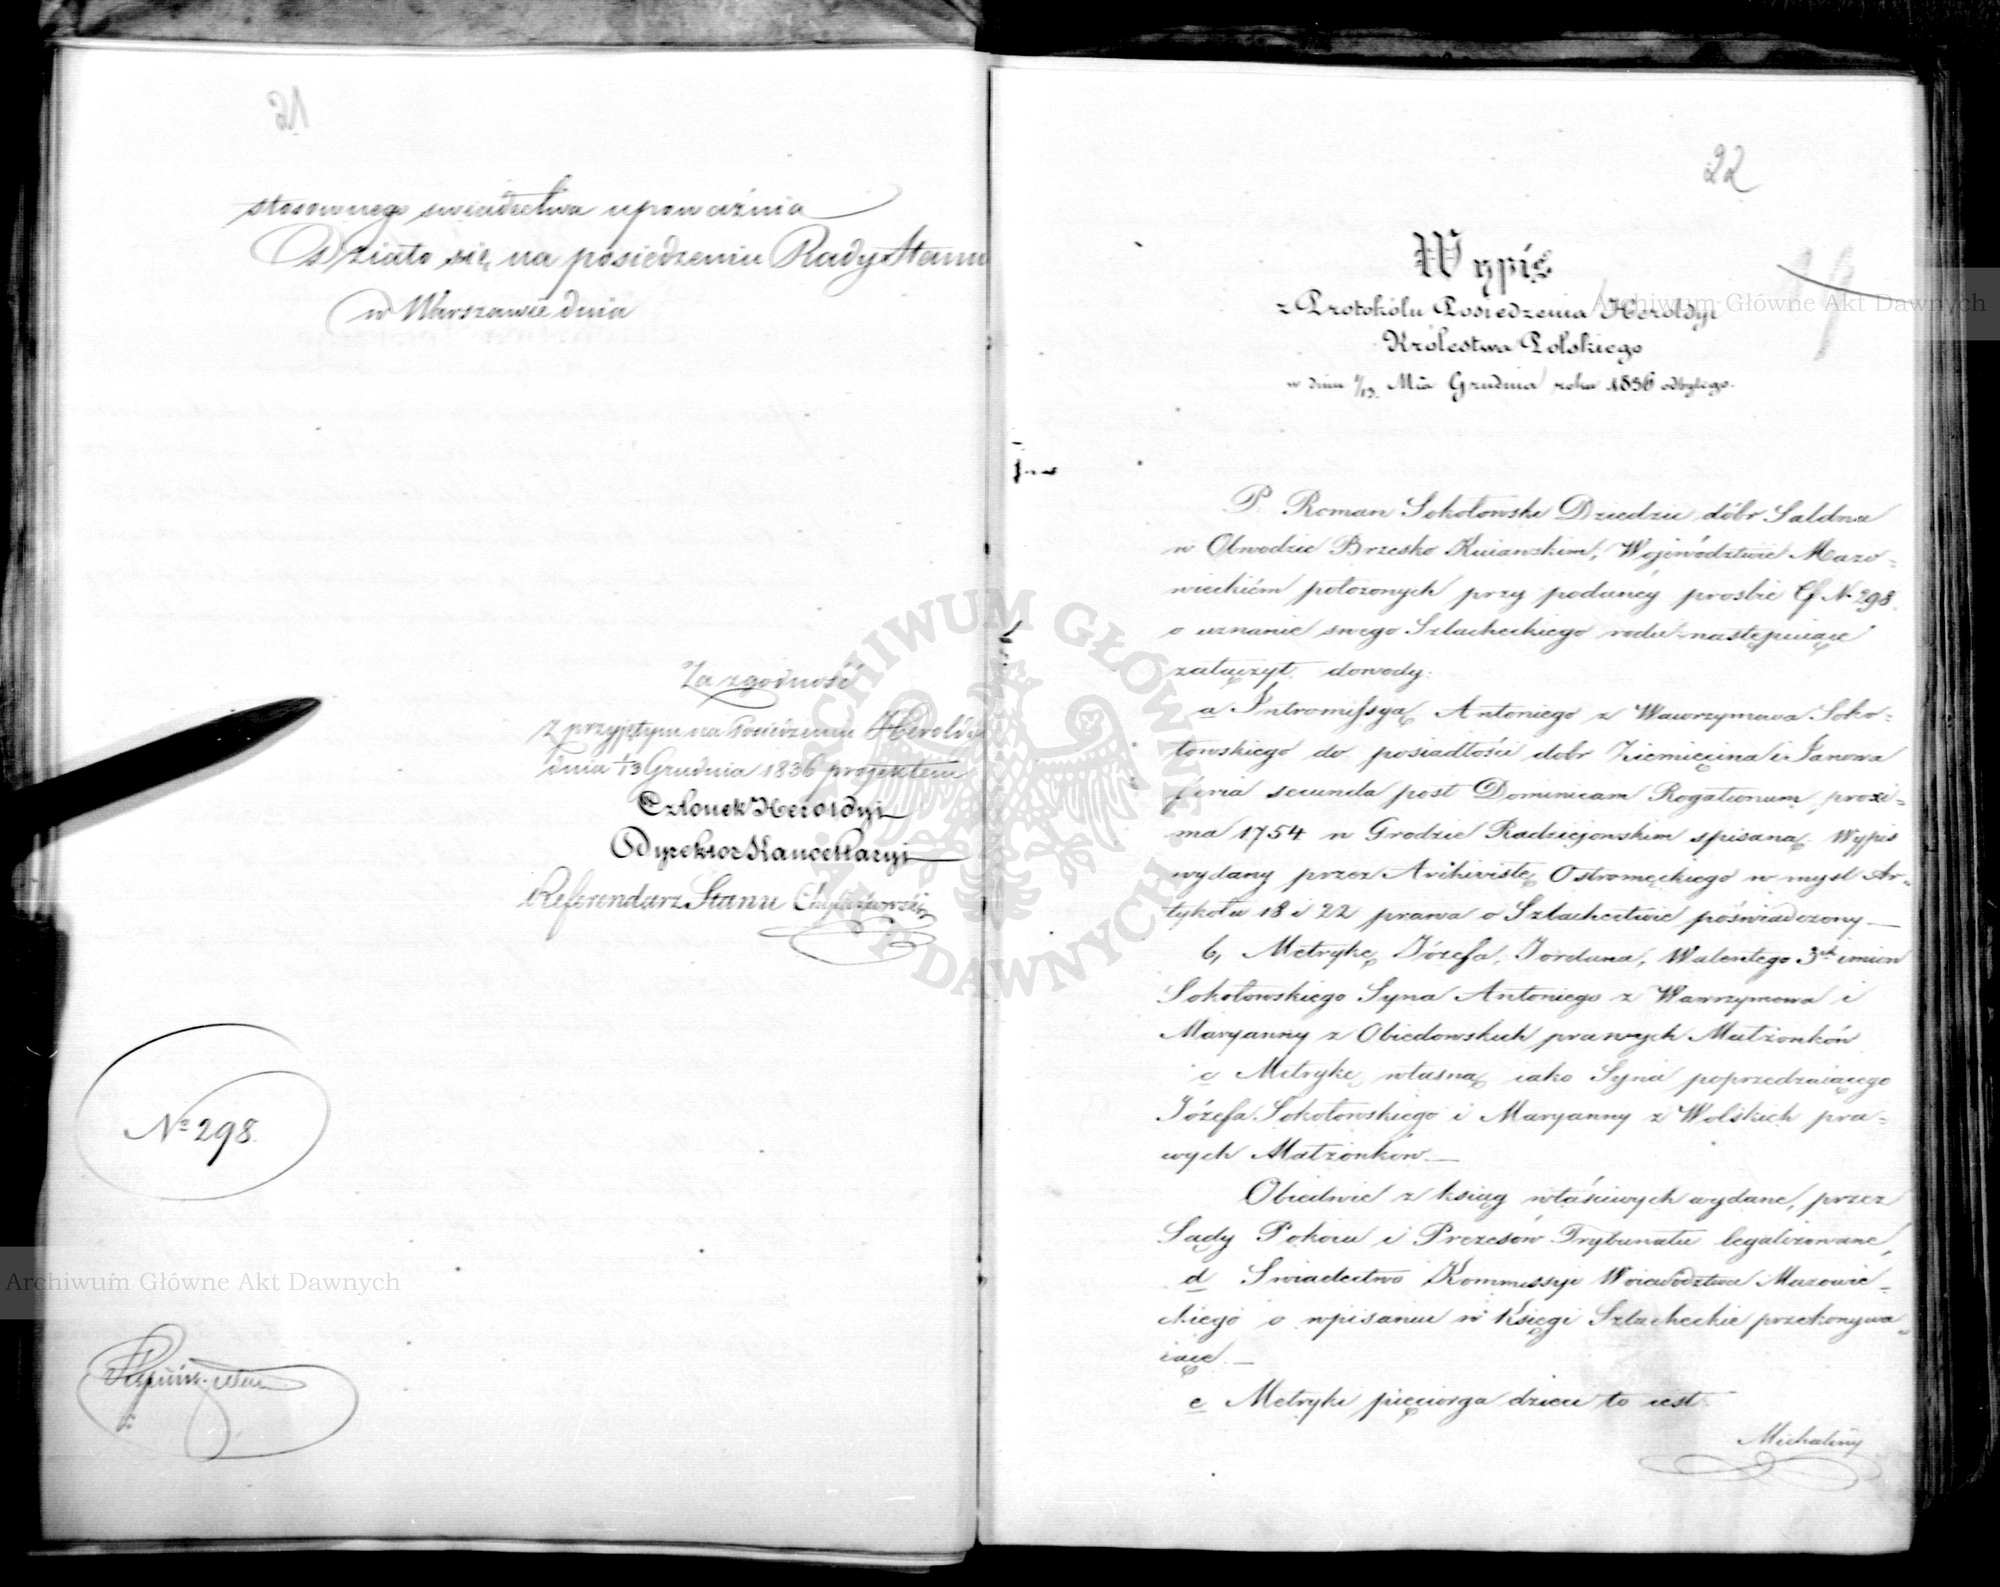 stosownego swiadectwa upoważnia
Działo się na posiedzeniu Rady Stanu
w Warszawie dnia
Za zgodność
z przyjętym na Posiedzeniu Heroldyi
dnia 1/13 Grudnia 1836 projektem
Członek Heroldyi
Dyrektor Kancellaryi
Referendarz Stanu
№ 298.
22
Wypis
z Protokółu Posiedzenia Heroldyi
Królestwa Polskiego
w dniu 1/13. Mca Grudnia roku 1836 odbytego.
P. Roman Sokołowski Dziedzic dóbr Saldna
w Obwodzie Brzesko Kuiawskim, Województwie Mazo-
wieckiém położonych przy podanéy prosbie № 298.
o uznanie swego Szlacheckiego rodu następuiące
załączył dowody:
a Intromissyą Antoniego z Wawrzymowa Soko-
łowskiego do posiadłości dobr Ziemięcina i Janowa
feria secunda post Dominicam Rogationum proxi-
ma 1754 w Grodzie Radziejowskim spisaną. Wypis
wydany przez Archiwistę Ostromęckiego w mysl Ar-
tykołu 18 i 22 prawa o Szlachectwie poświadczony —
b, Metrykę Józefa, Jordana, Walentego 3ch imion
Sokołowskiego Syna Antoniego z Wawrzymowa i
Maryanny z Obiedowskich prawych Małżonków
c Metrykę własną iako Syna poprzedzaiącego
Józefa Sokołowskiego i Maryanny z Wolskich pra-
wych Małżonków. —
Obiedwie z ksiąg właściwych wydane, przez
Sądy Pokoiu i Prezesów Trybunału legalizowane,
d Swiadectwo Kommissyi Woiewództwa Mazowie-
ckiego o wpisaniu w Księgi Szlacheckie przekonywa-
iące. —
e Metryki pięciorga dzieci to iest:
Michaliny
Archiwum Główne Akt Dawnych
ARCHIWUM GŁÓWNE AKT DAWNYCH
Archiwum Główne Akt Dawnych